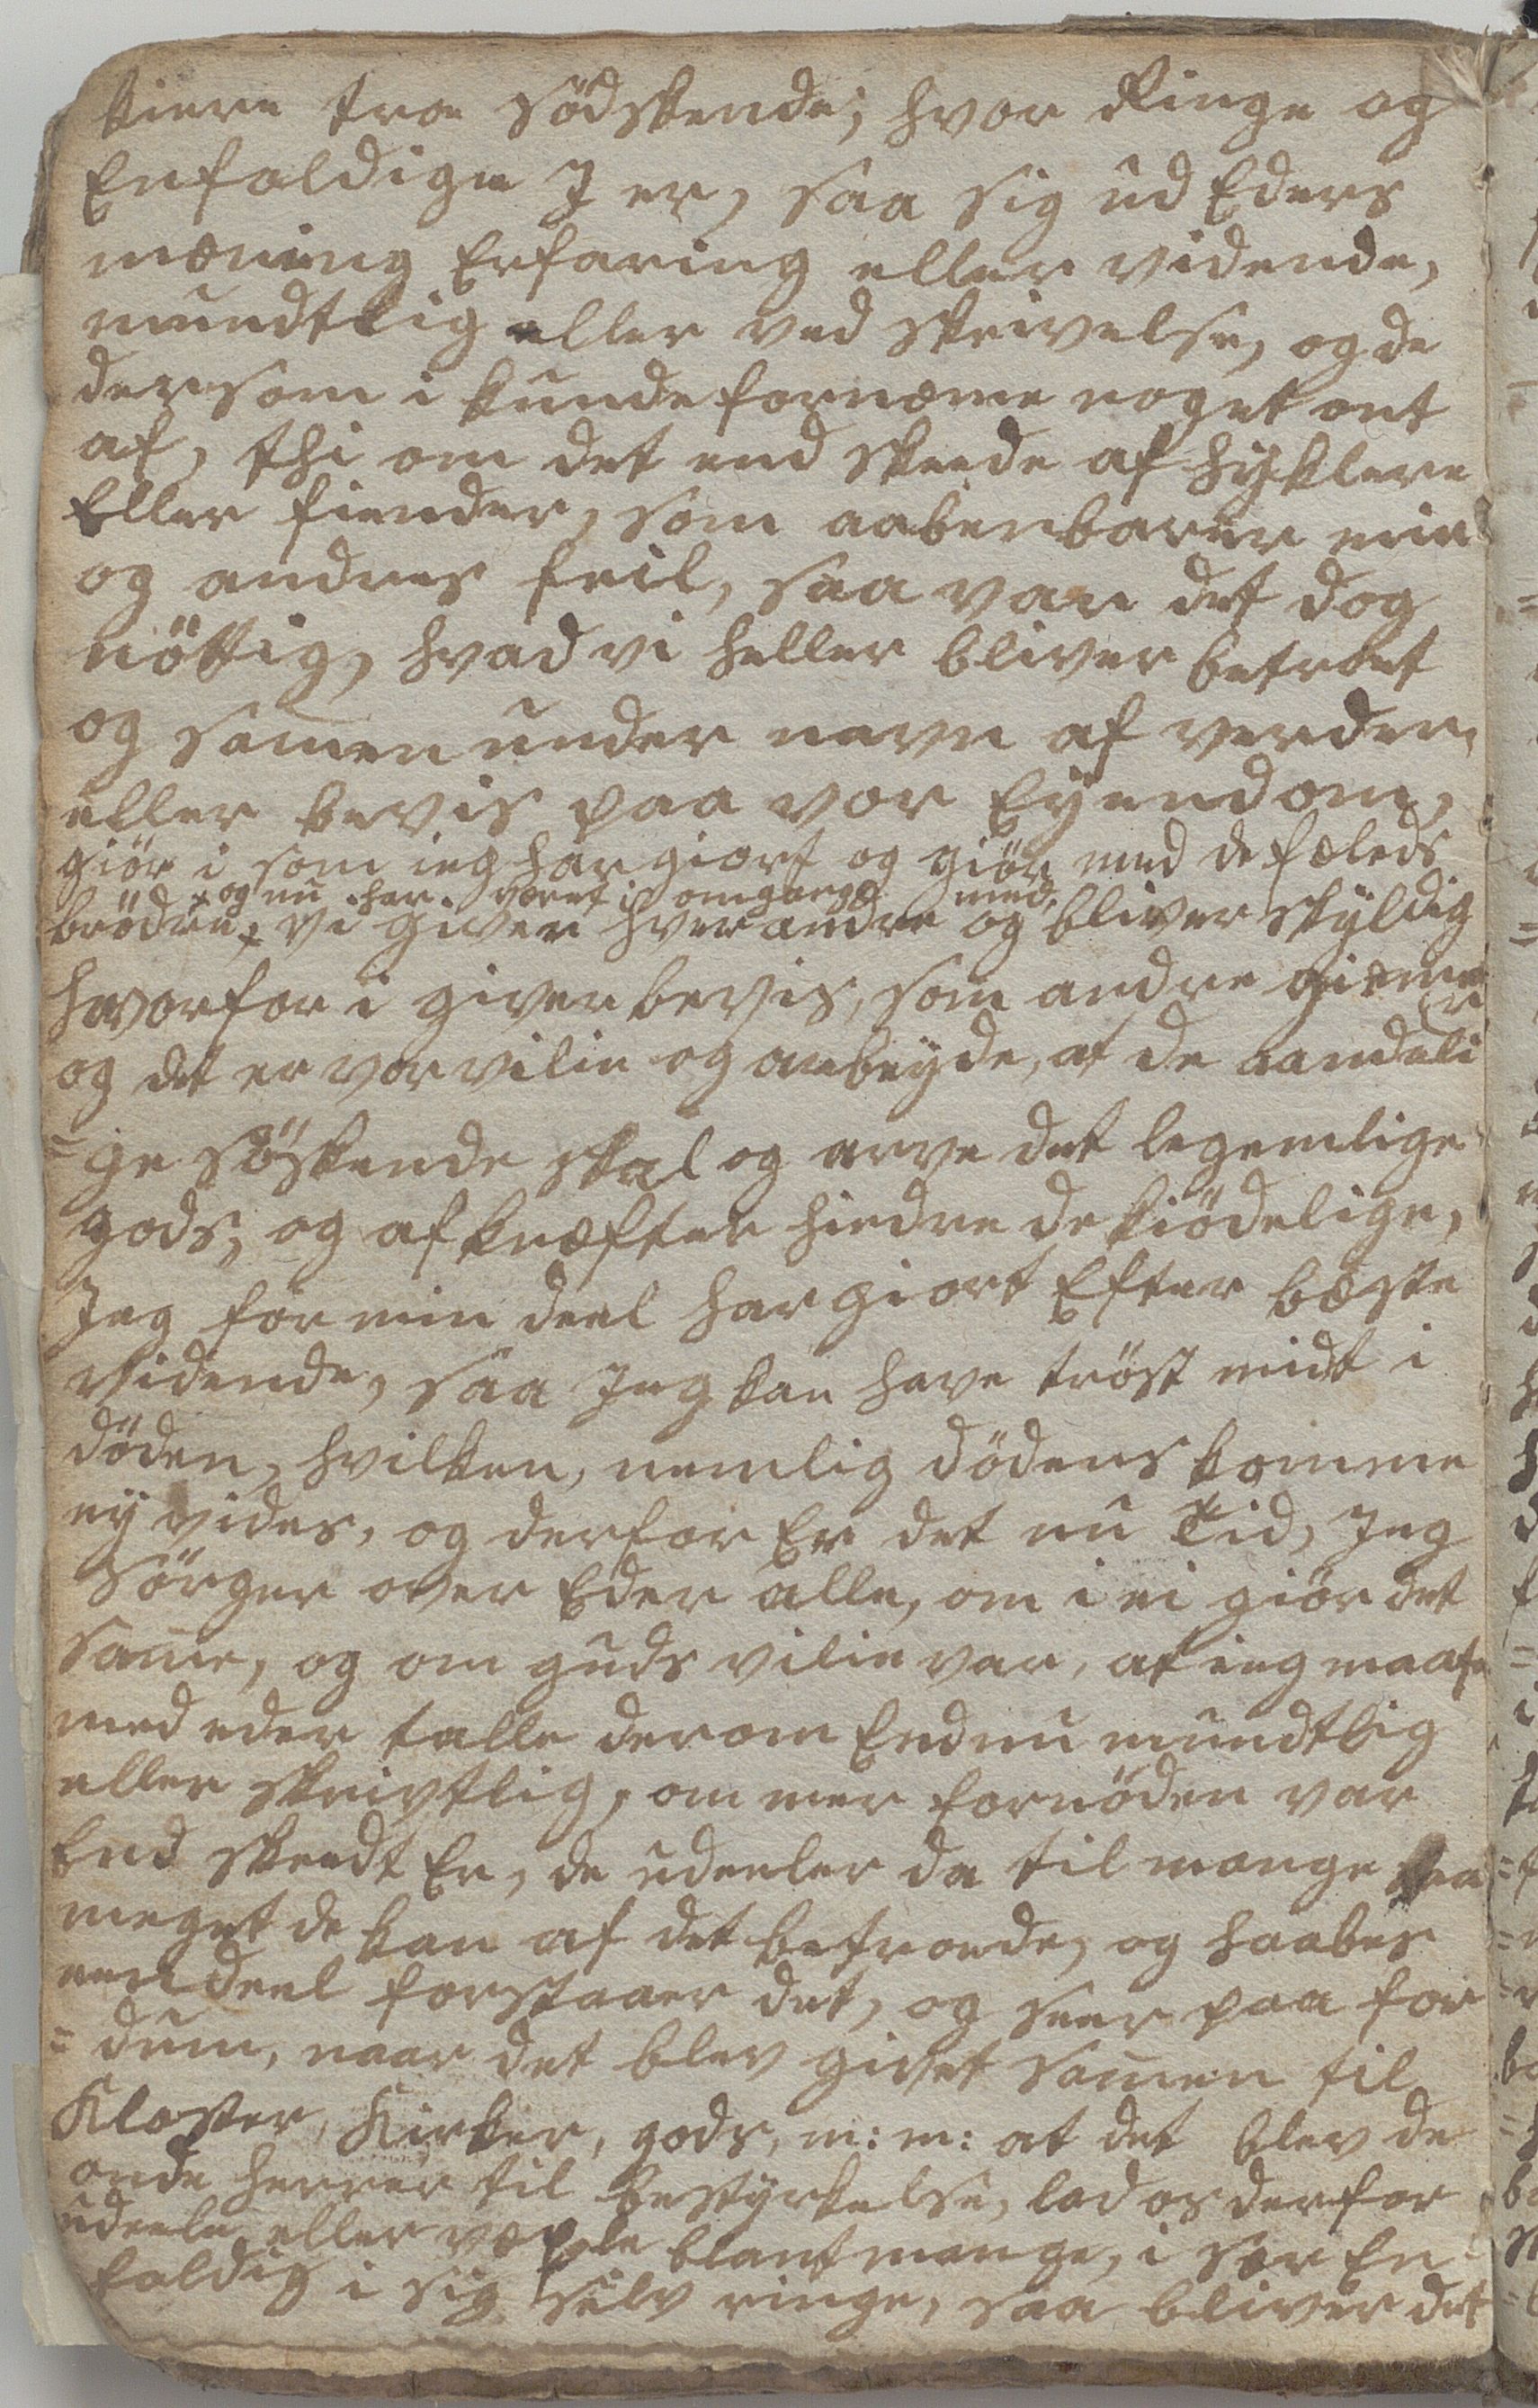 kiere troe södskende; hvor Ringe og
Enfoldige I er, saa sig ud Eders
mæning Erfaring eller vidende,
mundtlig eller ved skrivelse, og de
dersom i kunde fornæme noget ont
af, thi om det end skeede af hyklere
Eller fiender, som aabenbarer min
og andres feil, saa var det dog
nöttig, hvad vi heller bliver betroet
og samen under navn af verden,
eller bevis paa vor Eyendom,
giör i som ieg har giort og giör med de fæleds
+ og nu har været i omgang med,
brödre, + vi giver hverandre og bliver skyldig
hvorfor i giver bevis, som andre giemer
og det er vor vilie og arbeyde, at de aandeli
=ge söskende skal og arve det legemlige
gods, og afkræfter hindre de kiödelige,
Jeg for min deel har giort Efter bæste
vidende, saa Jeg kan have tröst midt i
döden, hvilken, nemlig dödens komme
ey vides, og derfor Er det nu Tid, Jeg
Sörger over Eder alle, om i ei giör det
same, og om guds vilie var, at ieg maate
med eder talle derom Endnu mundtlig
eller skrivtlig, om mer fornöden var
End skeedt Er, de udeeler da til mange saa
meget de kan af det betroede, og haabes
een deel forstaaer det, og seer paa for
=dum, naar det blev givet samen til
Kloster, Kirker, gods, m: m: at det blev de
onde herrer til bestyrkelse, lad os derfor
udeele eller væxle blant mange, i sær En=
foldig i sig selv ringe, saa bliver det